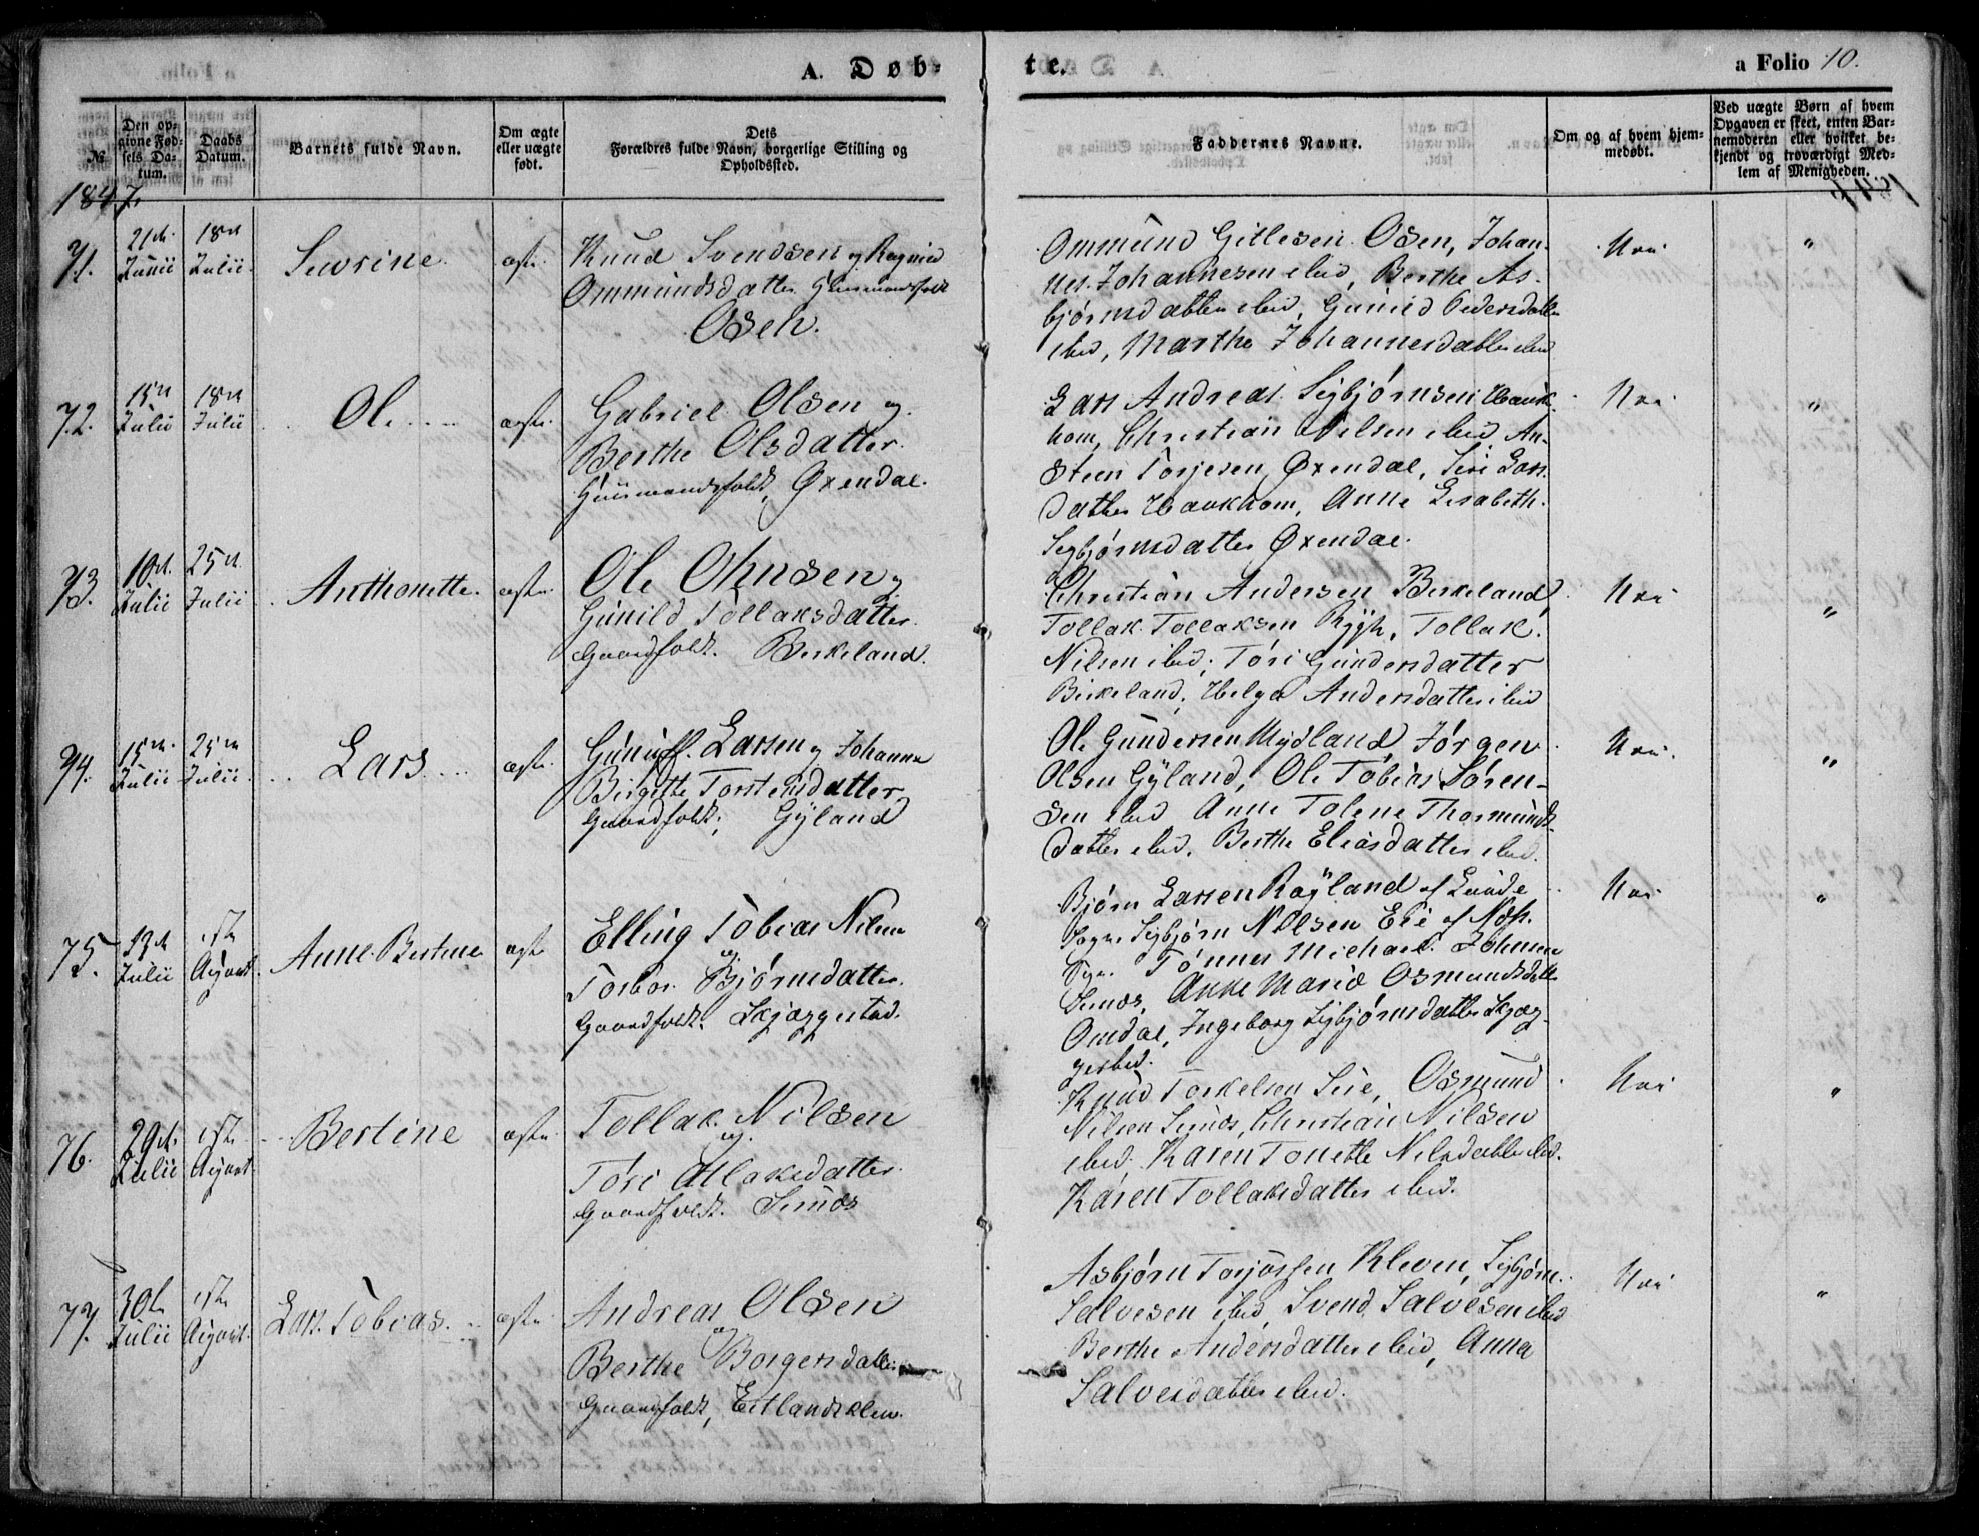 A. Døb-
te.
a Folio 10.
№
Den op-
givne Fød-
sels Da-
tum.
Daabs
Datum.
Barnets fulde Navn.
Om ægte
eller uægte
født.
Dets
Forældres fulde Navn, borgerlige Stilling og
Opholdssted.
Faddernes Navne.
Om og af hvem hjem-
medøbt.
Ved uægte Børn af hvem
Opgaven er skeet, enten Bar-
nemoderen eller hvilket be-
kjendt og troværdigt Med-
lem af Menigheden.
1847.
71.
21de
Junii
18de
Julii
Sevrine
ægte
Knud Svendsen og Ragnild
Ommundsdatter Huusmandsfolk
Osen.
Ommund Gitlesen Osen, Johan-
nes Johannesen ibid, Berthe As-
bjørnsdatter ibid, Gunild Pedersdatter
ibid, Marthe Johannesdatter ibid
Nei
"
72.
15de
Julii
18de
Julii
Ole
ægte
Gabriel Olsen og
Berthe Olsdatter
Huusmandsfolk, Øxendal.
Lars Andreas Sigbjørnsen Hauk-
hom, Christian Nilsen ibid An-
steen Torjesen Øxendal, Siri Lars-
datter Haukhom, Anne Lisabeth
Sigbjørnsdatter Øxendal.
Nei
"
73.
10de
Julii
25de
Julii
Anthonette
ægte
Ole Ohnsen og
Gunild Tollaksdatter
Gaardfolk. Birkeland.
Christian Andersen Birkeland,
Tollak Tollaksen Rygh, Tollak
Nilsen ibid, Tøri Gundersdatter
Birkeland, Helga Andersdatter ibid
Nei
"
74.
15de
Julii
25de
Julii
Lars
ægte
Gunuff Larsen og Johanna
Birgitte Torstensdatter
Gaardfolk, Gyland
Ole Gundersen Mydland, Jørgen
Olsen Gyland, Ole Tobias Søren-
sen ibid Anne Tolene Thormunds-
datter ibid, Berthe Eliasdatter ibid.
Nei
"
75.
13de
Julii
1ste
August
Anne Bertine
ægte
Elling Tobias Nilsen
og
Torbor Bjørnsdatter
Gaardfolk. Skjæggestad.
Bjørn Larsen Røyland af Lunde
Sogn Sigbjørn Nilsen Eie af Næss
Sogn. Tønnes Michael Johnsen
Sinnes, Anne Maria Osmundsdatter
Omdal, Ingeborg Sigbjørnsdatter Skjæg-
gestad.
Nei
"
76.
29de
Julii
1ste
August
Bertine
ægte
Tollak Nilsen
og
Tøri Atlaksdatter
Gaardfolk. Sinnes
Knud Torkelsen Seie, Osmund
Nilsen Sinnes, Christian Nilsen
ibid. Karen Tonette Nilsdatter ibid.
Karen Tollaksdatter ibid.
Nei
"
77.
30te
Julii
1ste
August
Lars Tobias
ægte
Andreas Olsen
og
Berthe Borgersdatter
Gaardfolk, Eitlandskleven.
Asbjørn Torjussen Kleven, Sigbjørn
Salvesen ibid, Svend Salvesen ibid
Berthe Andersdatter ibid, Anna
Salvesdatter ibid.
Nei
"